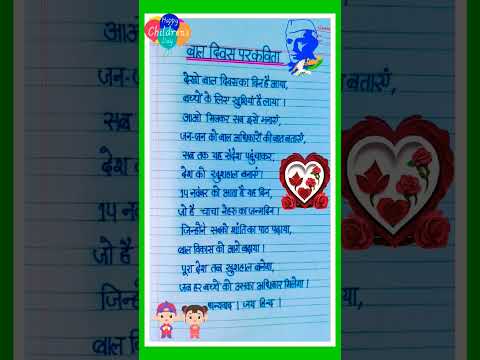 Happy
Children's
Day
बाल दिवस पर कविता
देखो बाल दिवस का दिन है आया,
बच्चों के लिए खुशियाँ है लाया ।
आओ मिलकर सब इसे मनाएं,
जन-जन को बाल अधिकारों की बात बताएं,
सब तक यह संदेश पहुंचाकर,
देश को खुशहाल बनाएं।
14 नवंबर को आता है यह दिन,
जो है चाचा नेहरू का जन्मदिन ।
जिन्होंने सबको शांति का पाठ पढ़ाया,
बाल विकास को आगे बढ़ाया ।
पूरा देश तब खुशहाल बनेगा,
जब हर बच्चे को उसका अधिकार मिलेगा ।
धन्यवाद । जय हिन्द ।